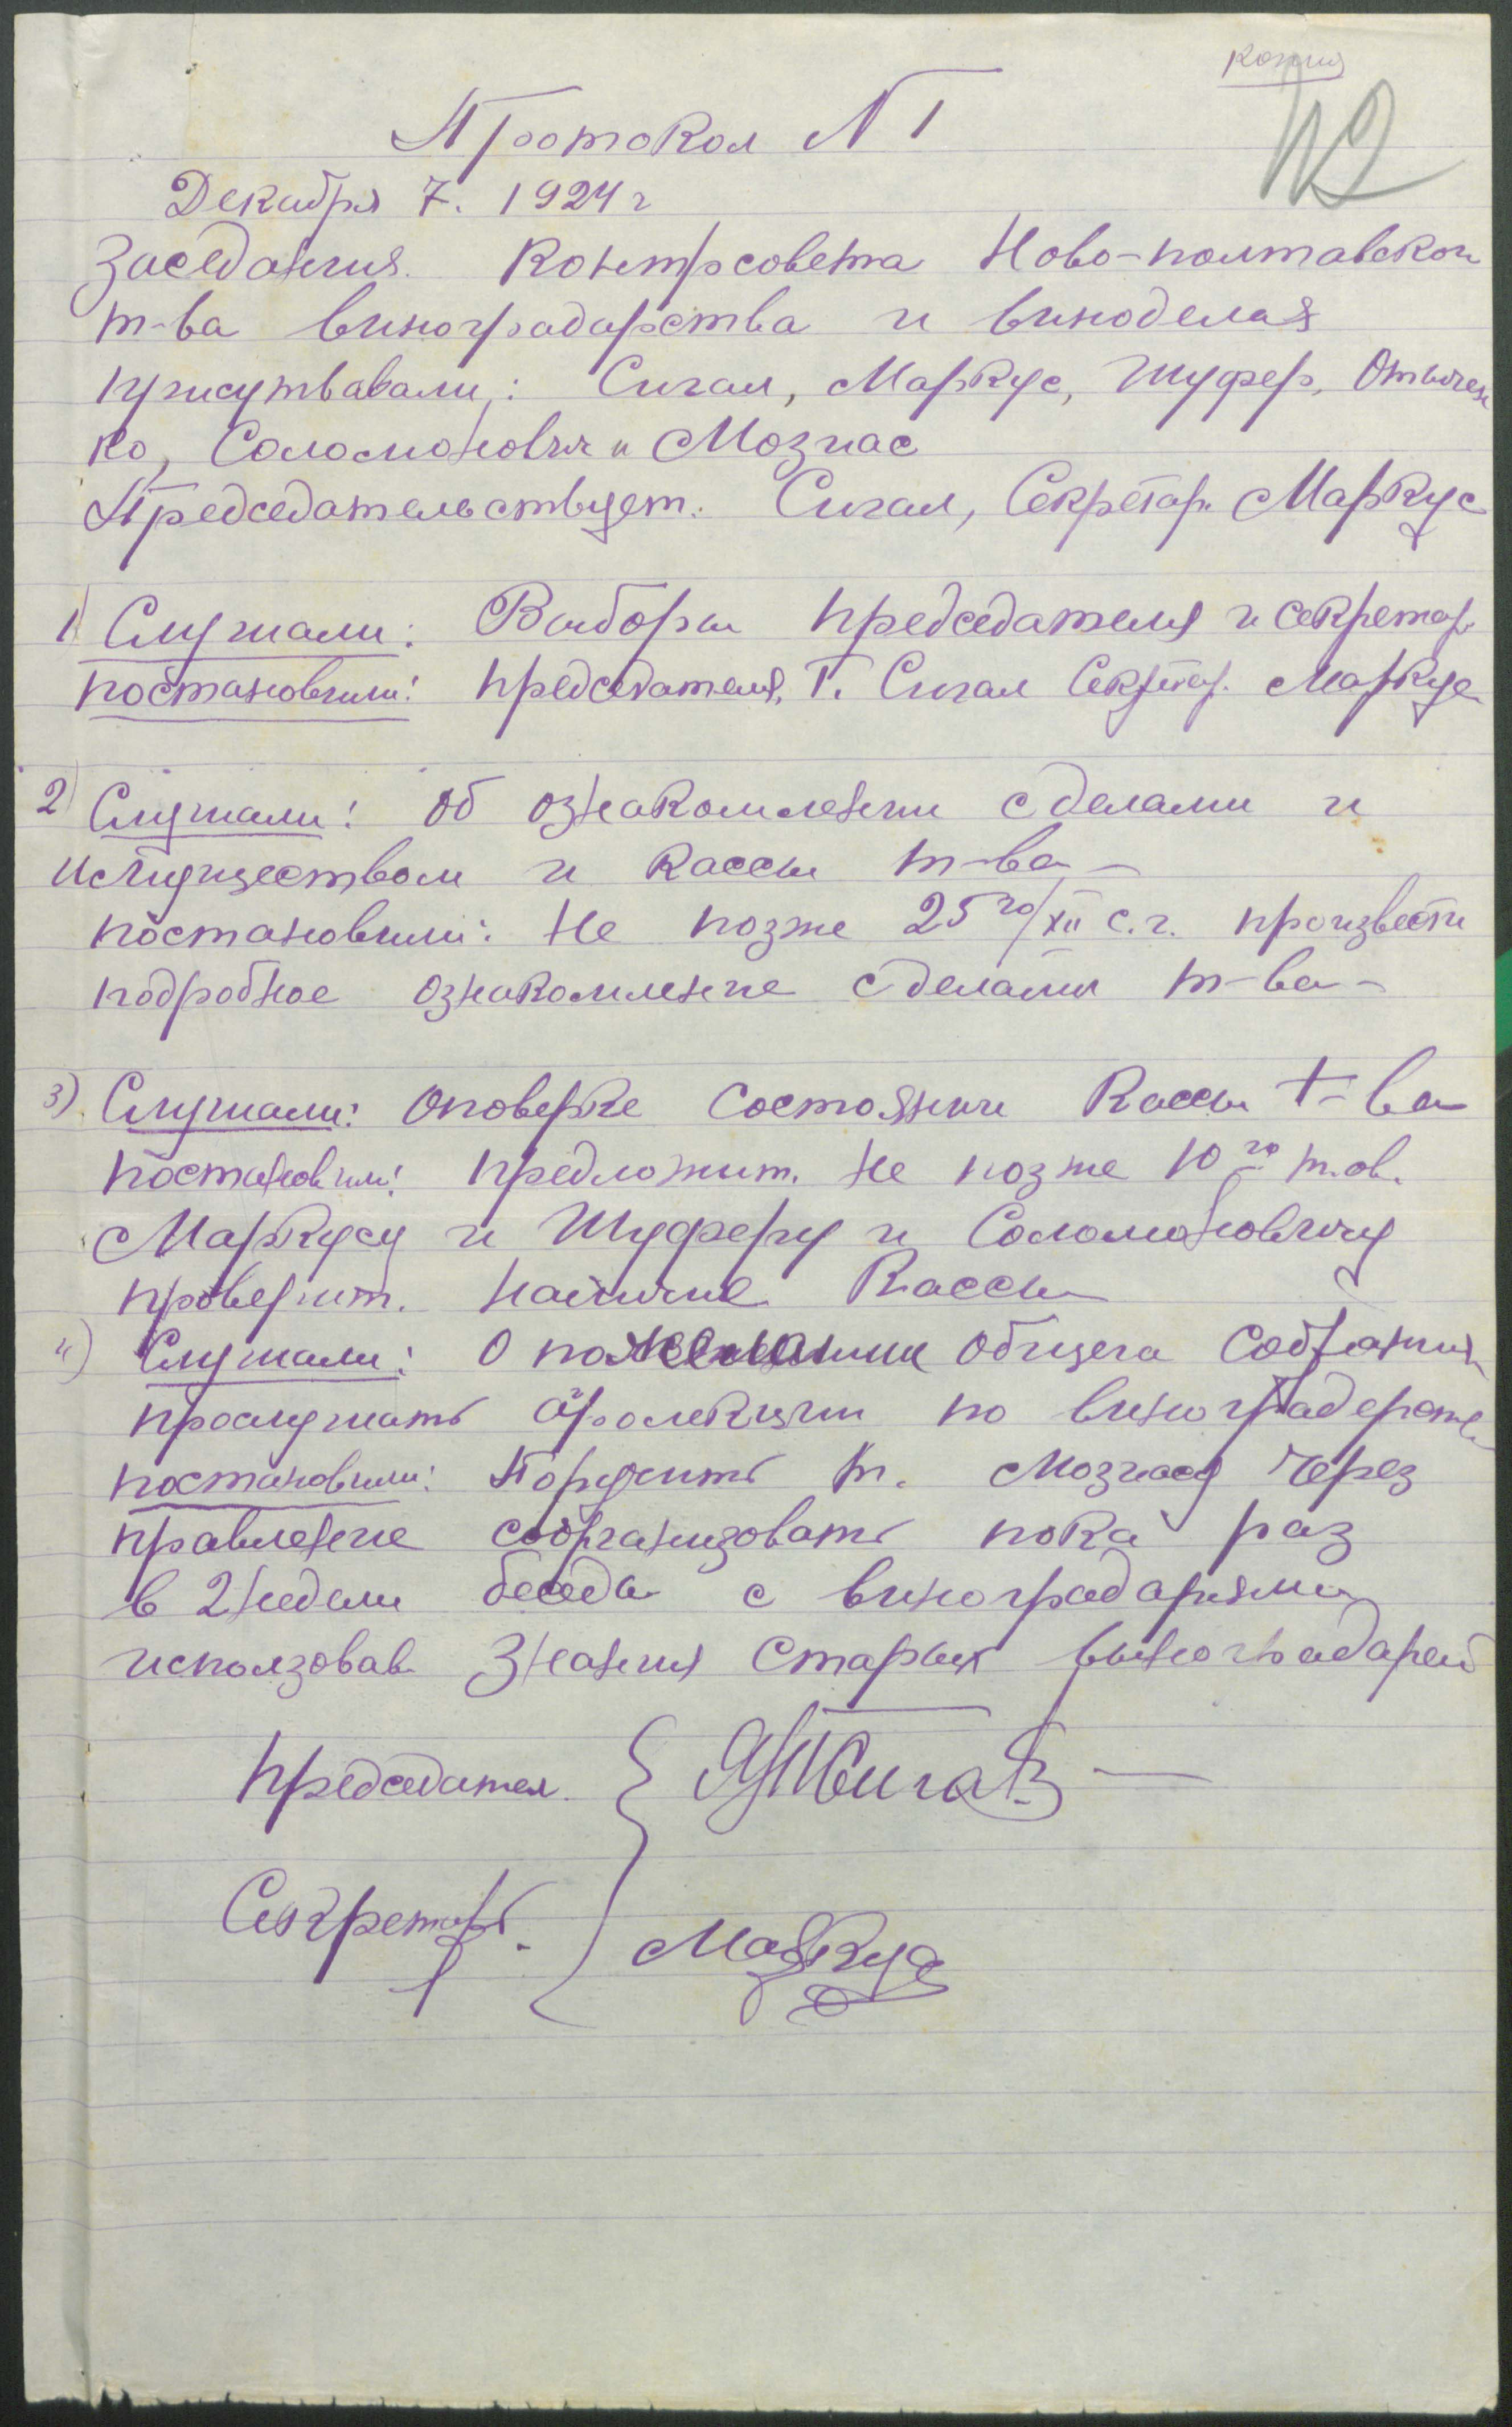 копия
Протокол N 1
Декабря 7. 1924 г
Заседания. Контрсовета Ново-полтавской
т-ва виноградарства и виноделия
присутвавали: Сигал, Маркус, Шуфер,
ко, Соломонович и Мозиас
Председательствует. Сигал, Секретар. Маркус
1) Слушали: Выборы председателя и секретар.
постановили: председателя, Т. Сигал Секретар. Маркуса
2) Слушали: Об ознакомлении с делами и
имуществом и кассы т-ва –
постановили: Не позже 25го/XII с.г. произвести
подробное ознакомление с делами т-ва –
3) Слушали: О поверке состоянии кассы т-ва
постановили: предложит. не позже 10го т.ов.
Маркусу и Шуферу и Соломоновичу
проверит. наличие кассы
4) Слушали: О пожелании общега собрания
прослушать по виноградерства
постановили: Поручить т. Мозиасу через
правление сорганизовать пока раз
в 2 недели беседы с виноградарями
использовав знания старых виноградарей
Председател. Сигал
Секретарь. Маркус